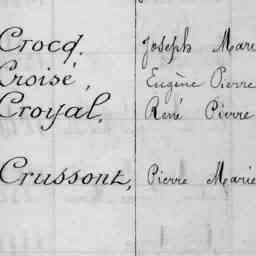 Crocq. Joseph Mari
Croisé, Eugène Pierre
Croyal, René Pierre
Crussont, Pierre Marie